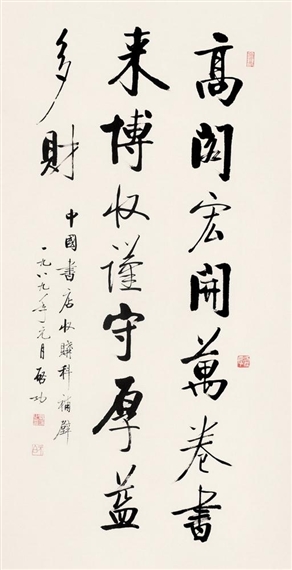 高阁宏開萬卷書
来博收謹守厚益
多財
中國書店收購科補壁
一九八九年元月啓功